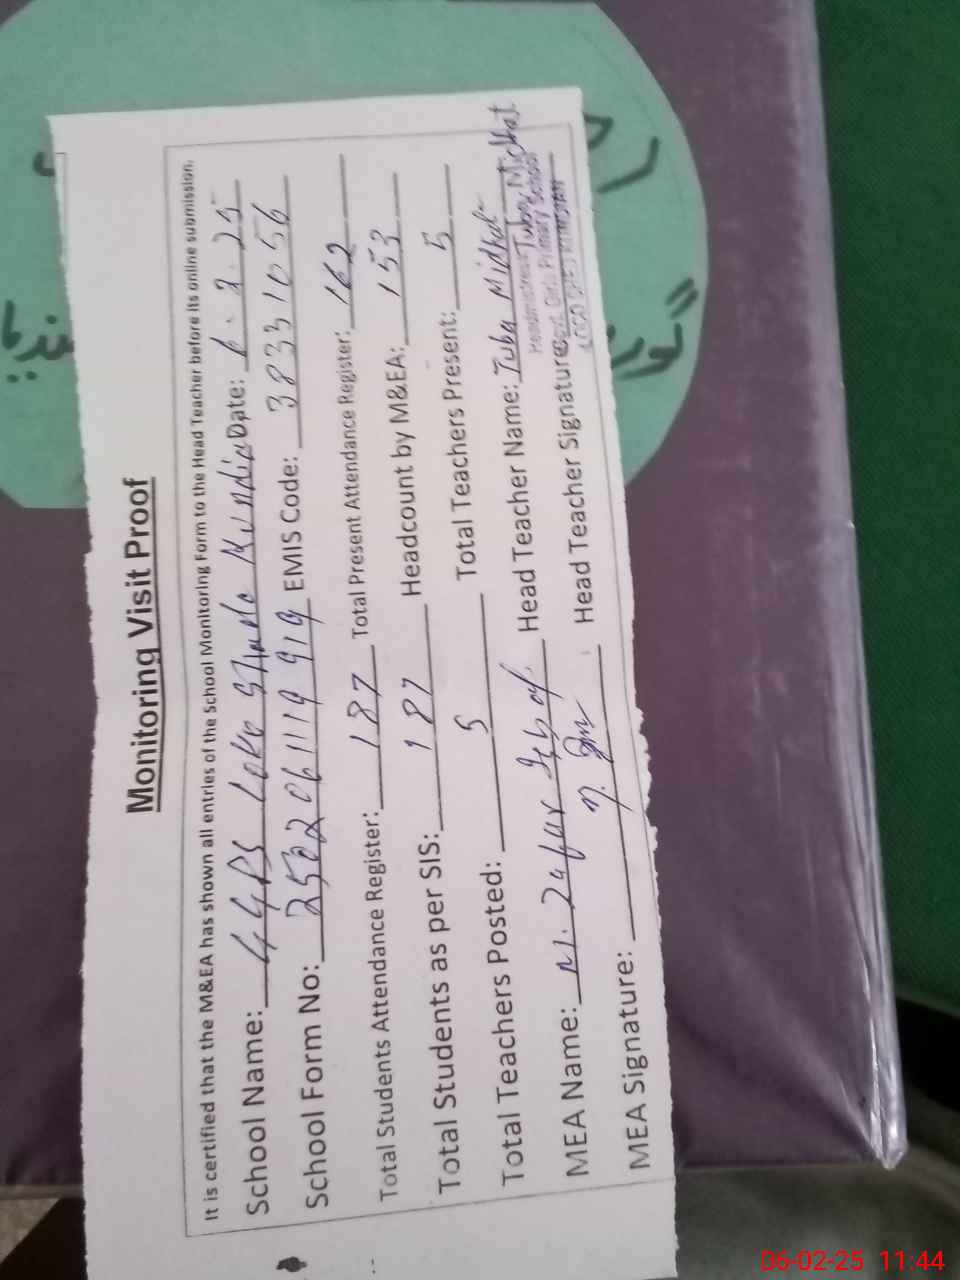 Monitoring Visit Proof
It is certified that the M&EA has shown all entries of the School Monitoring Form to the Head Teacher before its online submission.
School Name: GGPS Loko Shado Mundia Date: 6.2.25
School Form No: 2502061119919 EMIS Code: 38331056
Total Students Attendance Register: 187 Total Present Attendance Register: 162
Total Students as per SIS: 187 Headcount by M&EA: 153
Total Teachers Posted: 5 Total Teachers Present: 5
MEA Name: M. Zafar Head Teacher Name: Tuba Midhat
Headmistress Tuba Midhat
MEA Signature: Head Teacher Signature:
Govt. Girls Primary School
06-02-25 11:44